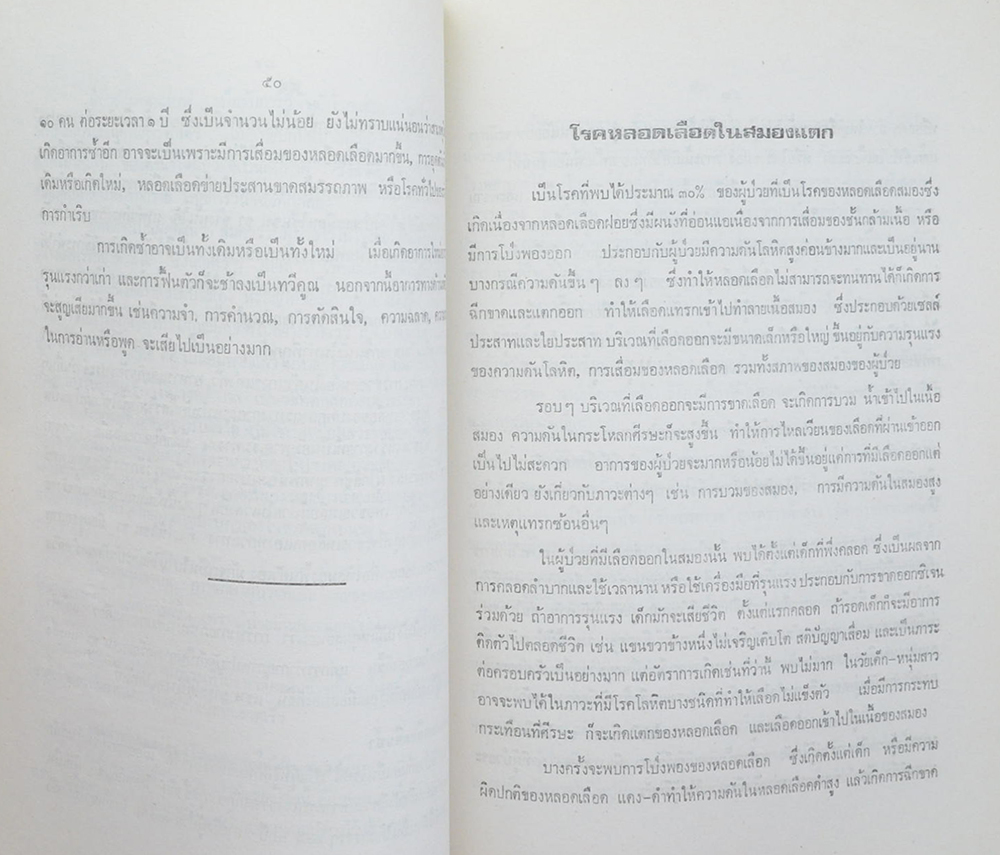 ๕๐
๑๐ คน ต่อระยะเวลา ๑ ปี ซึ่งเป็นจำนวนไม่น้อย ยังไม่ทราบแน่นอนว่า
เกิดอาการซ้ำอีก อาจจะเป็นเพราะมีการเสื่อมของหลอดเลือดมากขึ้น,
เดิมหรือเกิดใหม่, หลอดเลือดข่ายประสานขาดสมรรถภาพ หรือโรคทั่วไป
การกำเริบ
การเกิดซ้ำอาจเป็นทั้งเดิมหรือเป็นทั้งใหม่ เมื่อเกิดอาการใหม่
รุนแรงกว่าเก่า และการฟื้นตัวก็จะช้าลงเป็นทวีคูณ นอกจากนี้อาการทาง
จะสูญเสียมากขึ้น เช่นความจำ, การคำนวณ, การตัดสินใจ, ความฉลาด,
ในการอ่านหรือพูด จะเสียไปเป็นอย่างมาก
โรคหลอดเลือดในสมองแตก
เป็นโรคที่พบได้ประมาณ ๓๐% ของผู้ป่วยที่เป็นโรคของหลอดเลือดสมองซึ่ง
เกิดเนื่องจากหลอดเลือดฝอยซึ่งมีผนังที่อ่อนแอเนื่องจากการเสื่อมของชั้นกล้ามเนื้อ หรือ
มีการโป่งพองออก ประกอบกับผู้ป่วยมีความดันโลหิตสูงค่อนข้างมากและเป็นอยู่นาน
บางกรณีความดันขึ้น ๆ ลง ๆ ซึ่งทำให้หลอดเลือดไม่สามารถจะทนทานได้ก็เกิดการ
ฉีกขาดและแตกออก ทำให้เลือดแทรกเข้าไปทำลายเนื้อสมอง ซึ่งประกอบด้วยเซลล์
ประสาทและใยประสาท บริเวณที่เลือดออกจะมีขนาดเล็กหรือใหญ่ ขึ้นอยู่กับความรุนแรง
ของความดันโลหิต, การเสื่อมของหลอดเลือด รวมทั้งสภาพของสมองของผู้ป่วย
รอบ ๆ บริเวณที่เลือดออกจะมีการขาดเลือด จะเกิดการบวม น้ำเข้าไปในเนื้อ
สมอง ความดันในกระโหลกศีรษะก็จะสูงขึ้น ทำให้การไหลเวียนของเลือดที่ผ่านเข้าออก
เป็นไปไม่สะดวก อาการของผู้ป่วยจะมากหรือน้อยไม่ได้ขึ้นอยู่แค่การที่มีเลือดออกแต่
อย่างเดียว ยังเกี่ยวกับภาวะต่างๆ เช่น การบวมของสมอง, การมีความดันในสมองสูง
และเหตุแทรกซ้อนอื่นๆ
ในผู้ป่วยที่มีเลือดออกในสมองนั้น พบได้ตั้งแต่เด็กที่พึ่งคลอด ซึ่งเป็นผลจาก
การคลอดลำบากและใช้เวลานาน หรือใช้เครื่องมือที่รุนแรง ประกอบกับการขาดออกซิเจน
ร่วมด้วย ถ้าอาการรุนแรง เด็กมักจะเสียชีวิต ตั้งแต่แรกคลอด ถ้ารอดเด็กก็จะมีอาการ
ติดตัวไปตลอดชีวิต เช่น แขนขวาข้างหนึ่งไม่เจริญเติบโต สติปัญญาเสื่อม และเป็นภาระ
ต่อครอบครัวเป็นอย่างมาก แต่อัตราการเกิดเช่นที่ว่านี้ พบไม่มาก ในวัยเด็ก-หนุ่มสาว
อาจจะพบได้ในภาวะที่มีโรคโลหิตบางชนิดที่ทำให้เลือดไม่แข็งตัว เมื่อมีการกระทบ
กระเทือนที่ศีรษะ ก็จะเกิดแตกของหลอดเลือด และเลือดออกเข้าไปในเนื้อของสมอง
บางครั้งจะพบการโป่งพองของหลอดเลือด ซึ่งเกิดตั้งแต่เด็ก หรือมีความ
ผิดปกติของหลอดเลือด แดง-ดำทำให้ความดันในหลอดเลือดดำสูง แล้วเกิดการฉีกขาด